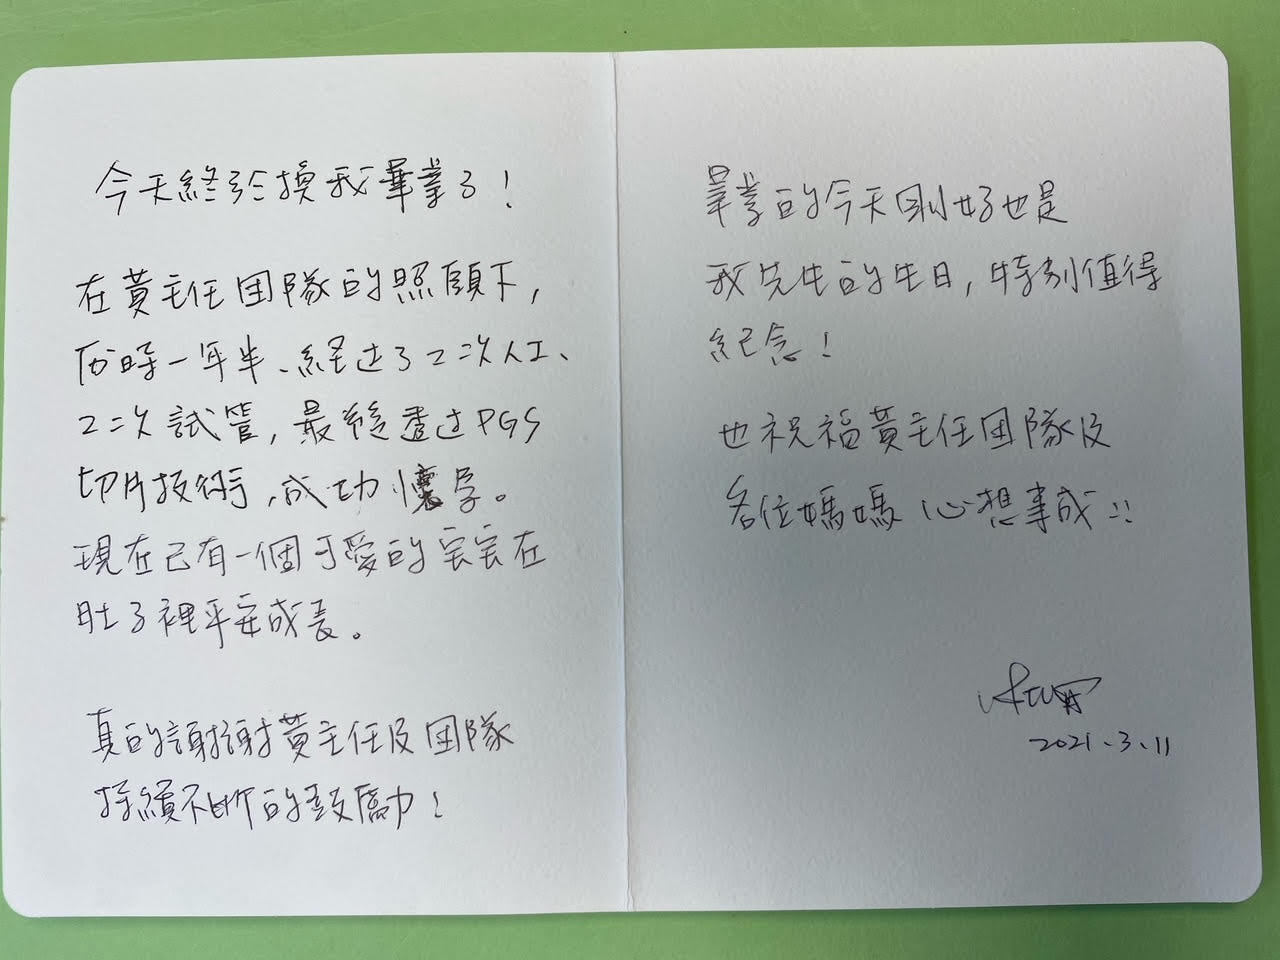 今天終於換我畢業了!
在黃主任團隊的照顧下,
历時一年半、經过了2次人工、
2次試管,最後透过PGS
切片技術,成功懷孕。
現在已有一個可愛的宝宝在
肚子裡平安成長。
真的謝謝黃主任及團隊
持續不斷的鼓勵!
畢業的今天剛好也是
我先生的生日,特別值得
紀念!
也祝福黃主任團隊及
各位媽媽心想事成!!
2021.3.11